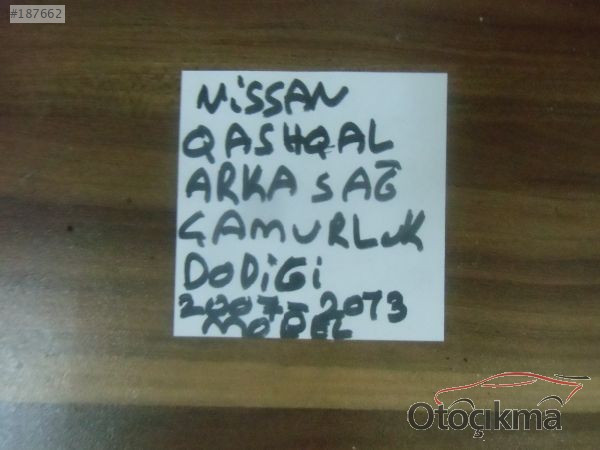 #187662
NISSAN
QASHQAL
ARKA SAĞ
ÇAMURLUK
DODİĞİ
2007-2013
MODEL
Otoçıkma